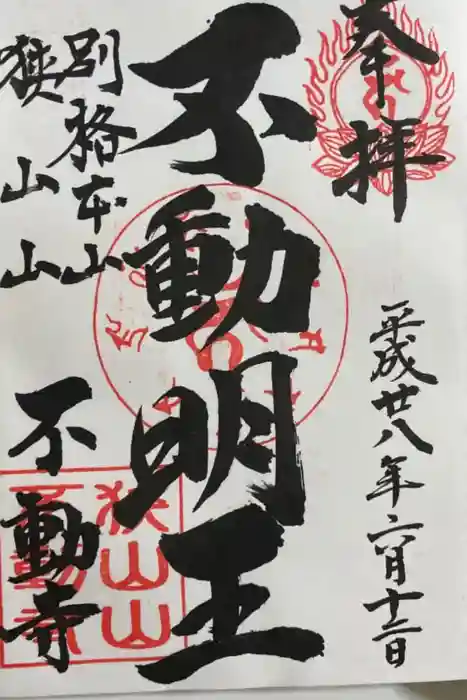 奉拝
平成廿八年六月十二日
不動明王
別格本山
狭山山
不動寺
狭山山
不動寺